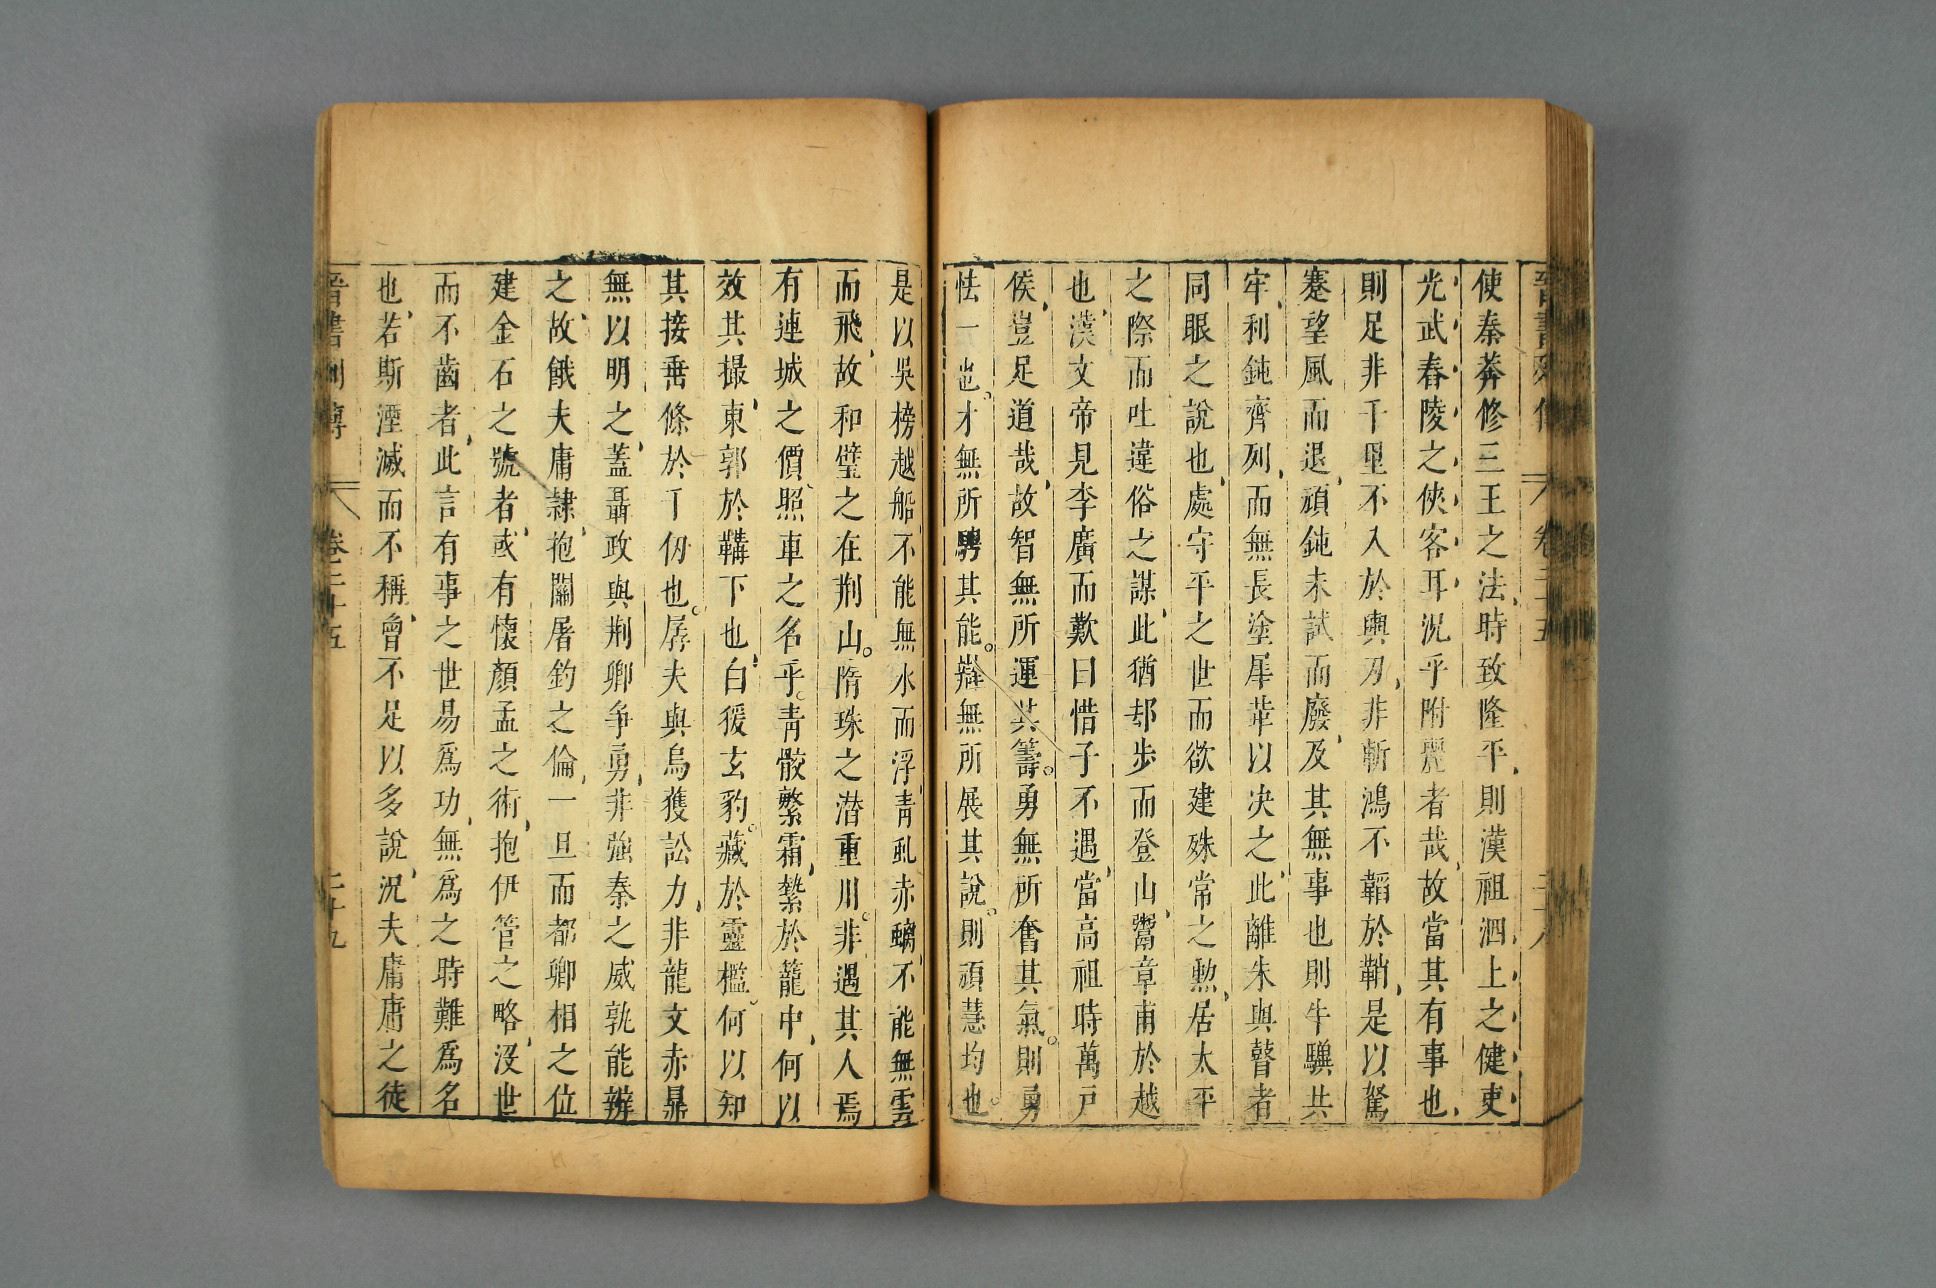 使秦莽修三王之法時致隆平則漢祖泗上之健吏
光武舂陵之俠客耳況乎附麗者哉故當其有事也
則足非千里不入於輿刃非斬鴻不韜於鞘是以駑
蹇望風而退頑鈍未試而廢及其無事也則牛驥共
牢利鈍齊列而無長塗犀革以决之此離朱與瞽者
同眼之說也處守平之世而欲建殊常之勲居太平
之際而吐違俗之謀此猶却步而登山鬻章甫於越
也漢文帝見李廣而歎曰惜子不遇當高祖時萬户
侯豈足道哉故智無所運其籌勇無所奮其氣則勇
怯一也才無所騁其能辯無所展其說則頑慧均也
是以吳榜越船不能無水而浮青虬赤螭不能無雲
而飛故和璧之在荆山隋珠之潜重川非遇其人焉
有連城之價照車之名乎青骹繁霜縶於籠中何以
效其撮東郭於鞲下也白猨玄豹藏於靈檻何以知
其接垂條於千仞也孱夫與烏獲訟力非龍文赤鼎
無以明之蓋聶政與荆卿争勇非强秦之威孰能辨
之故餓夫庸隸抱關屠釣之倫一旦而都卿相之位
建金石之號者或有懷顏孟之術抱伊管之略沒世
而不齒者此言有事之世易爲功無爲之時難爲名
也若斯湮滅而不稱曾不足以多說況夫庸庸之徒
晋書列傳 卷二十五 二十九